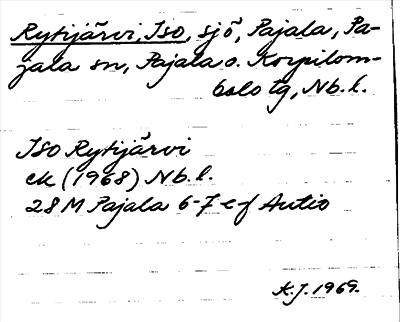 Rytijärvi, Iso, sjö, Pajala, Pa-
jala sn, Pajala o. Korpilom-
bolo tg, Nb. l.
Iso Rytijärvi
ek (1968) Nb. l.
28 M Pajala 6-7 e-f Autio
K.J. 1969.